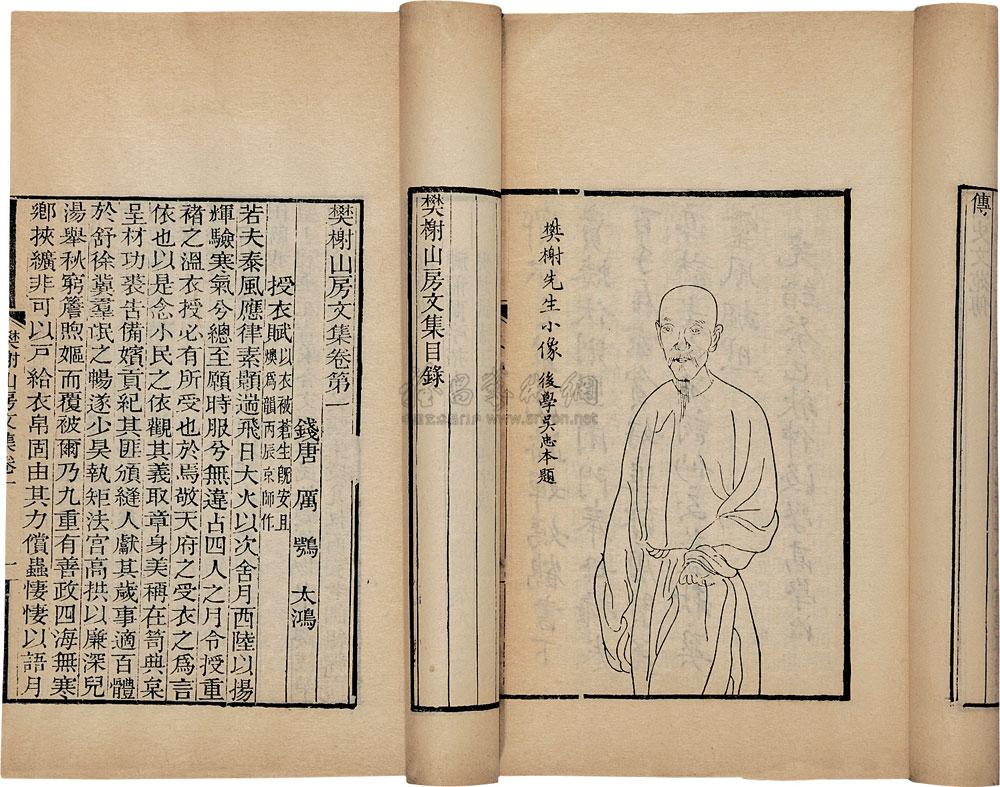 傳
樊榭先生小像
後學吳忠本題
樊榭山房文集目錄
樊榭山房文集卷第一
錢唐 厲 鶚 太鴻
授衣賦 以衣被蒼生旣安且燠爲韻丙辰京師作
若夫泰風應律素顥遄飛日大火以次舍月西陸以揚
輝驗寒氣兮總至願時服兮無違占四人之月令授重
褚之溫衣授必有所受也於焉敬天府之受衣之爲言
依也以是念小民之依觀其義取章身美稱在笥典枲
呈材功裘告備嬪貢紀其匪頒縫人獻其歲事適百體
於舒徐冀羣氓之暢遂少昊執矩法宮高拱以廉深兒
湯舉秋窮簷煦嫗而覆被爾乃九重有善政四海無寒
鄉挾纊非可以戸給衣帛固由其力償蟲悽悽以語月
樊榭山房文集卷一
一